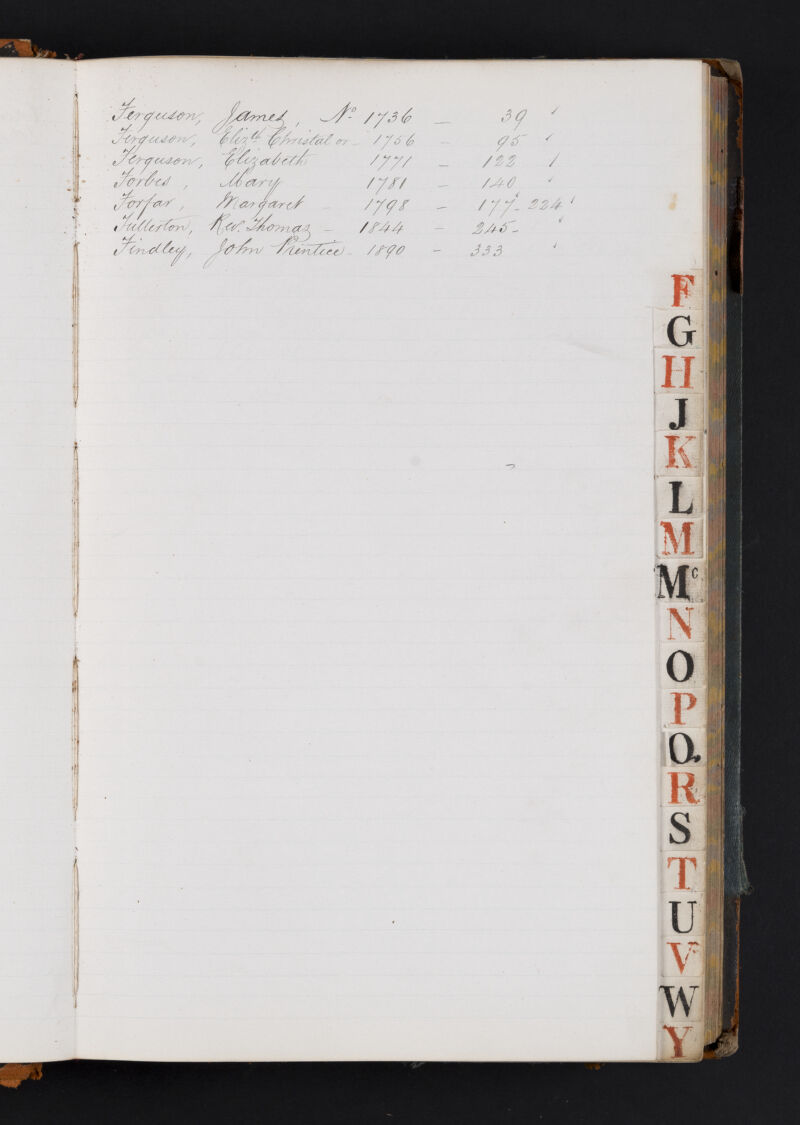 Ferguson, James, No 1736 – 39
Ferguson, Elizth Christal or – 1756 – 95
Ferguson, Elizabeth 1771 – 122
Forbes, Mary 1781 – 140
Forfar, Margaret – 1798 – 177 – 224
Fullerton, Rev. Thomas – 1844 – 245 –
Findley, John Prentice – 1890 – 333
F
G
H
J
K
L
M
Mc
N
O
P
Q
R
S
T
U
V
W
Y